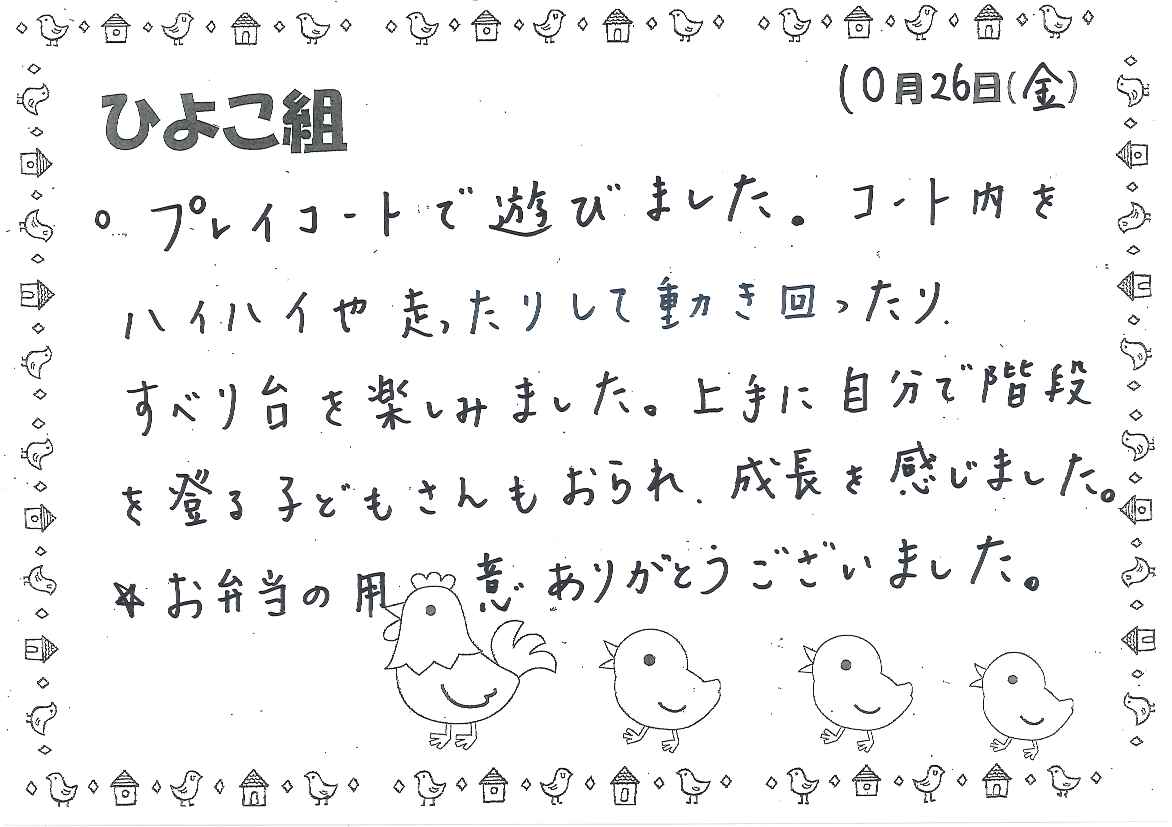 10月26日(金)
ひよこ組
○ プレイコートで遊びました。コート内を
ハイハイや走ったりして動き回ったり、
すべり台を楽しみました。上手に自分で階段
を登る子どもさんもおられ、成長を感じました。
☆ お弁当の用意ありがとうございました。